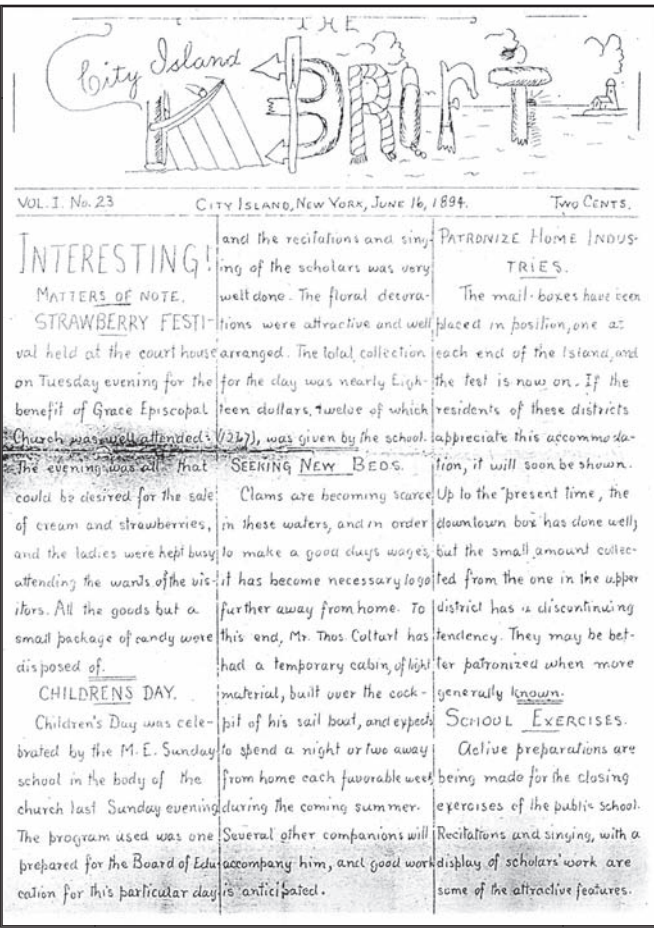 THE
City Island
DRIFT
VOL. I. No. 23
CITY ISLAND, NEW YORK, JUNE 16, 1894.
TWO CENTS.
INTERESTING!
MATTERS OF NOTE.
STRAWBERRY FESTI-
val held at the court house
on Tuesday evening for the
benefit of Grace Episcopal
Church was well attended.
The evening was all that
could be desired for the sale
of cream and strawberries,
and the ladies were kept busy
attending the wants of the vis-
itors. All the goods but a
small package of candy were
disposed of.
CHILDRENS DAY.
Children's Day was cele-
brated by the M. E. Sunday
school in the body of the
church last Sunday evening
The program used was one
prepared for the Board of Edu
cation for this particular day
and the recitations and sing-
ing of the scholars was very
well done. The floral decora-
tions were attractive and well
arranged. The total collection
for the day was nearly Eigh-
teen dollars, twelve of which
was given by the school.
SEEKING NEW BEDS.
Clams are becoming scarce
in these waters, and in order
to make a good days wages,
it has become necessary to go
further away from home. To
this end, Mr. Thos. Coltart has
had a temporary cabin, of light
material, built over the cock-
pit of his sail boat, and expects
to spend a night or two away
from home each favorable week
during the coming summer.
Several other companions will
accompany him, and good work
is anticipated.
PATRONIZE HOME INDUS-
TRIES.
The mail-boxes have been
placed in position, one at
each end of the Island, and
the test is now on. If the
residents of these districts
appreciate this accommoda-
tion, it will soon be shown.
Up to the present time, the
downtown box has done well,
but the small amount collec-
ted from the one in the upper
district has a discontinuing
tendency. They may be bet-
ter patronized when more
generally known.
SCHOOL EXERCISES.
Active preparations are
being made for the closing
exercises of the public school.
Recitations and singing, with a
display of scholars' work are
some of the attractive features.